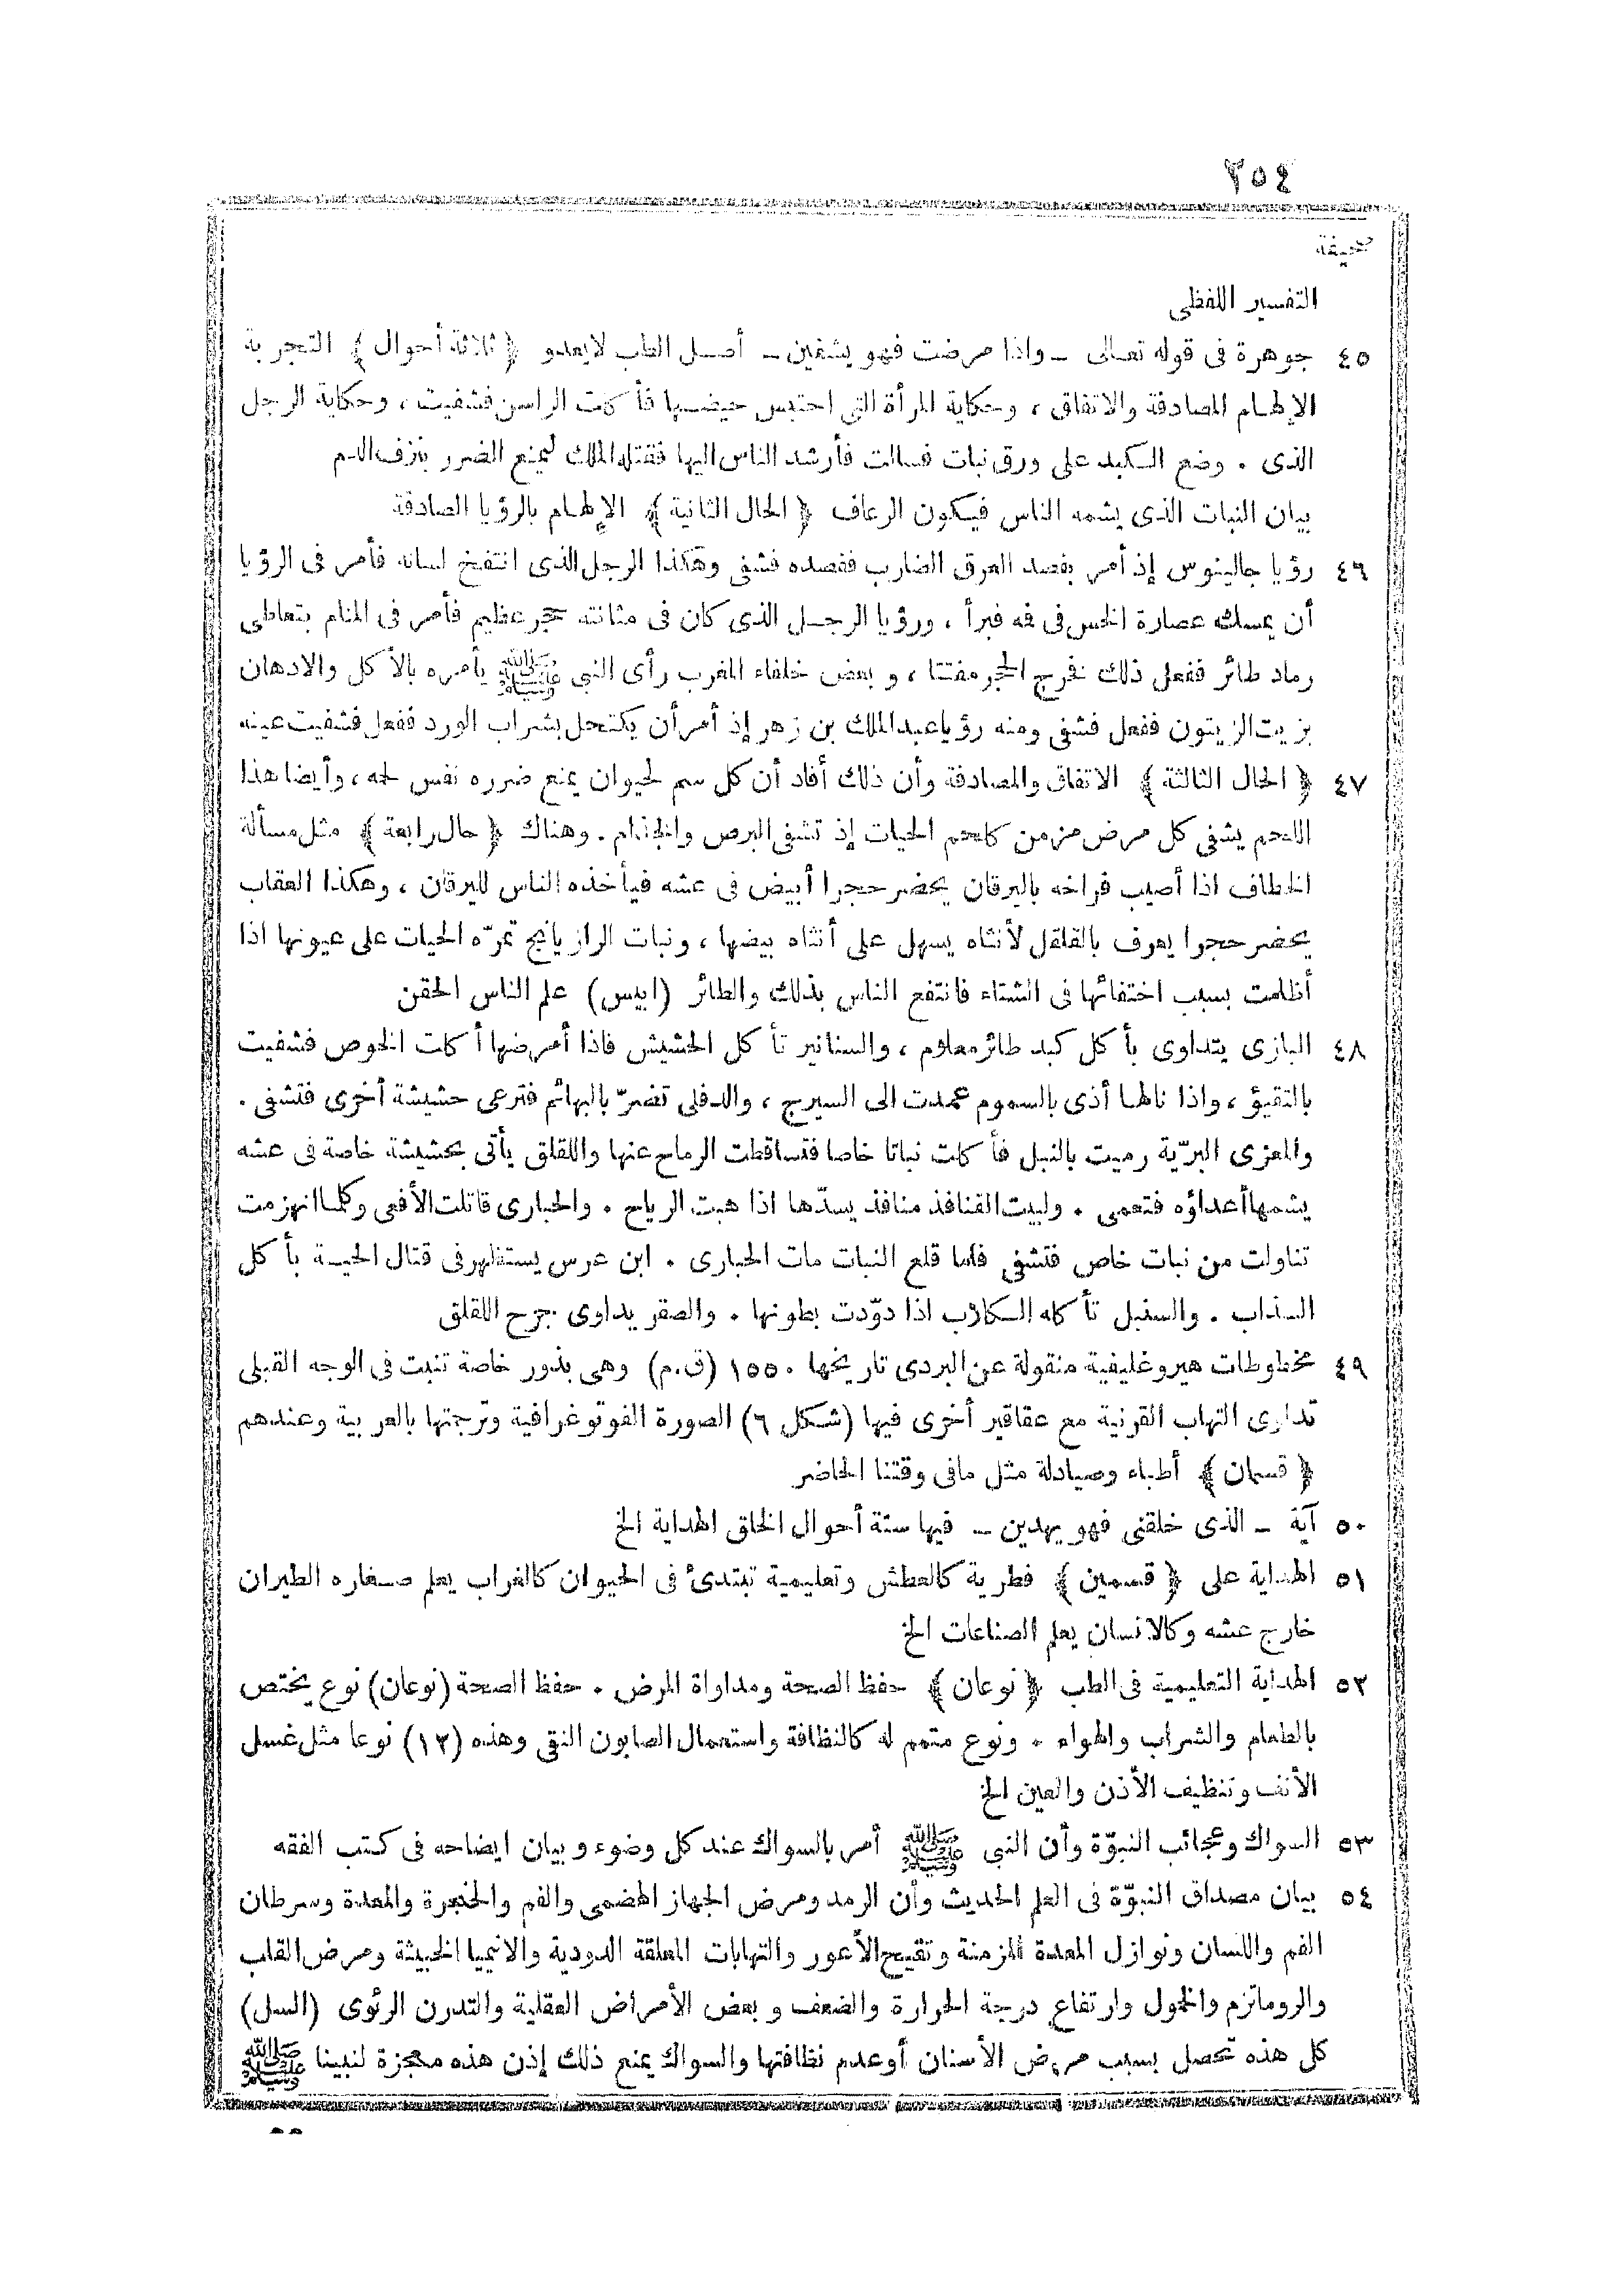 ٢٥٤
صحيفة
التفسير اللفظى
٤٥ جوهرة فى قوله تعالى ـ واذا مرضت فهو يشفين ـ أصل الطب لايعدو ﴿ ثلاثة أحوال ﴾ التجربة
الإلهام المصادفة والاتفاق ، وحكاية المرأة التى احتبس حيضها فأكلت الراسن فشفيت ، وحكاية الرجل
الذى . وضع الكبد على ورق نبات فسالت فأرشد الناس اليها فقتله الملك ليمنع الضرر بنزف الدم
بيان النبات الذى يشمه الناس فيكون الرعاف ﴿ الحال الثانية ﴾ الإلهام بالرؤيا الصادقة
٤٦ رؤيا جالينوس إذ أمر بفصد العرق الضارب ففصده فشفى وهكذا الرجل الذى انتفخ لسانه فأمر فى الرؤيا
أن يمسك عصارة الخس فى فمه فبرأ ، ورؤيا الرجل الذى كان فى مثانته حجر عظيم فأمر فى المنام بتعاطى
رماد طائر ففعل ذلك نخرج الحجر مفتتا ، وبعض خلفاء المغرب رأى النبي ﷺ يأمره بالأكل والادهان
بزيت الزيتون ففعل فشفى ومنه رؤيا عبد الملك بن زهر إذ أمر أن يكتحل بشراب الورد ففعل فشفيت عينه
٤٧ ﴿ الحال الثالثة ﴾ الاتفاق والمصادفة وأن ذلك أفاد أن كل سم لحيوان يمنع ضرره نفس لحمه ، وأيضا هذا
اللحم يشفى كل مرض مزمن كلحم الحيات إذ تشفى البرص والجذام . وهناك ﴿ حال رابعة ﴾ مثل مسألة
الخطاف اذا أصيب فراخه باليرقان يحضر حجرا أبيض فى عشه فيأخذه الناس لليرقان ، وهكذا العقاب
يحضر حجرا يعرف بالقلقل لأنثاه يسهل على أنثاه بيضها ، ونبات الرازيانج تمرّه الحيات على عيونها اذا
أظلمت بسبب اختفائها فى الشتاء فانتفع الناس بذلك والطائر (ابيس) علم الناس الحقن
٤٨ البازى يتداوى بأكل كبد طائر معلوم ، والسنانير تأكل الحشيش فاذا أمرضها أكلت الخوص فشفيت
بالتقيؤ ، واذا نالها أذى بالسموم عمدت الى السيرج ، والدفلى تضرّ بالبهائم فترعى حشيشة أخرى فتشفى .
والمعزى البرّية رميت بالنبل فأكلت نباتا خاصا فتساقطت الرماح عنها واللقلق يأتى بحشيشة خاصة فى عشه
يشمها أعداؤه فتعمى . ولبيت القنافذ منافذ يسدّها اذا هبت الرياح . والحبارى قاتلت الأفعى وكلما انهزمت
تناولت من نبات خاص فتشفى فلما قلع النبات مات الحبارى . ابن عرس يستظهر فى قتال الحية بأكل
السذاب . والسنبل تأكله الكلاب اذا دوّدت بطونها . والصقر يداوى جرح اللقلق
٤٩ مخطوطات هيروغليفية منقولة عن البردى تاريخها ١٥٥٠ (ق.م) وهى بذور خاصة تنبت فى الوجه القبلى
تداوى التهاب القرنية مع عقاقير أخرى فيها (شكل ٦) الصورة الفوتوغرافية وترجمتها بالعربية وعندهم
﴿ قسمان ﴾ أطباء وصيادلة مثل مافى وقتنا الحاضر
٥٠ آية ـ الذى خلقنى فهو يهدين ـ فيها ستة أحوال الخلق الهداية الخ
٥١ الهداية على ﴿ قسمين ﴾ فطرية كالعطش وتعليمية تبتدئ فى الحيوان كالغراب يعلم صغاره الطيران
خارج عشه وكالانسان يعلم الصناعات الخ
٥٢ الهداية التعليمية فى الطب ﴿ نوعان ﴾ حفظ الصحة ومداواة المرض . حفظ الصحة (نوعان) نوع يختص
بالطعام والشراب والهواء . ونوع متمم له كالنظافة واستعمال الصابون النقى وهذه (١٢) نوعا مثل غسل
الأنف وتنظيف الأذن والعين الخ
٥٣ السواك وعجائب النبوّة وأن النبي ﷺ أمر بالسواك عند كل وضوء وبيان ايضاحه فى كتب الفقه
٥٤ بيان مصداق النبوّة فى العلم الحديث وأن الرمد ومرض الجهاز الهضمى والفم والحنجرة والمعدة وسرطان
الفم واللسان ونوازل المعدة المزمنة وتقيح الأعور والتهابات المعلقة الدودية والانيميا الخبيثة ومرض القلب
والروماتزم والخمول وارتفاع درجة الحرارة والضعف وبعض الأمراض العقلية والتدرن الرئوى (السل)
كل هذه تحصل بسبب مرض الأسنان أو عدم نظافتها والسواك يمنع ذلك إذن هذه معجزة لنبينا ﷺ